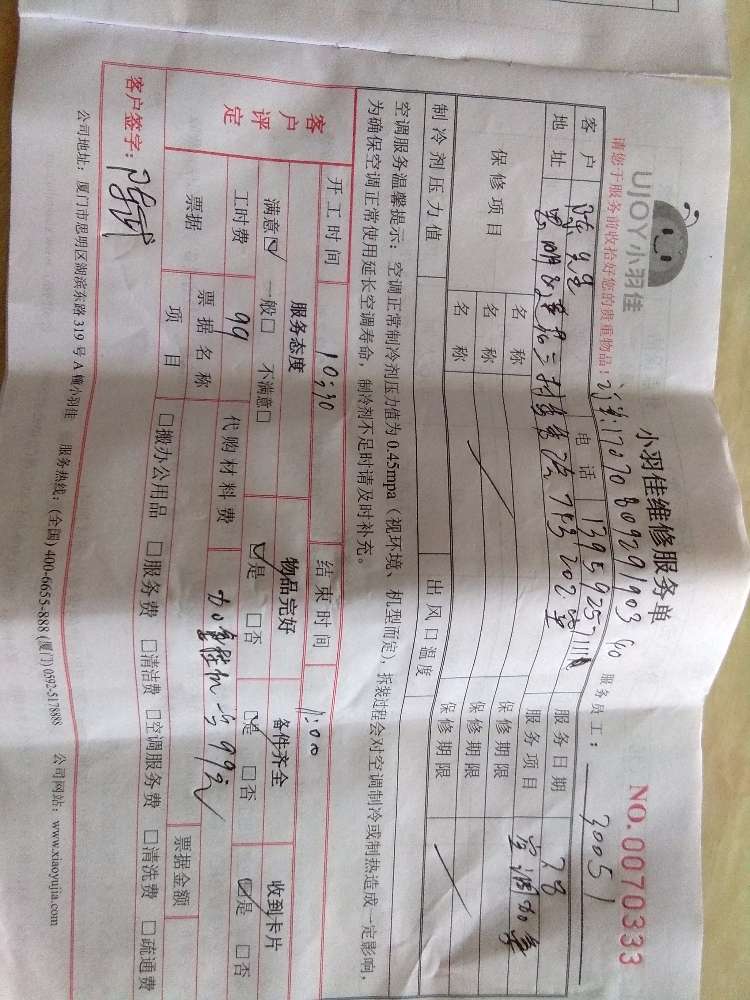 UJOY小羽佳
小羽佳维修服务单
NO.0070333
请您于服务前收拾好您的贵重物品!
服务员工:
30051
客户
陈先生
电话
服务日期
地址
服务项目
空调加氟
保修项目
名称
保修期限
名称
保修期限
名称
保修期限
制冷剂压力值
出风口温度
空调服务温馨提示:空调正常制冷剂压力值为0.45mpa(视环境、机型而定),拆装过程会对空调制冷或制热造成一定影响,
为确保空调正常使用延长空调寿命,制冷剂不足时请及时补充。
开工时间
10:30
结束时间
11:00
客户评定
服务态度
物品完好
备件齐全
收到卡片
满意☑ 一般□ 不满意□
☑是 □否
☑是 □否
☑是 □否
工时费
99
代购材料费
票据
票据名称
票据金额
项目
□搬办公用品 □服务费 □清洁费 □空调服务费 □清洗费 □疏通费
客户签字:
公司地址:厦门市思明区湖滨东路319号A幢小羽佳 服务热线:(全国)400-6655-888(厦门)0592-5178888 公司网站:www.xiaoyujia.com